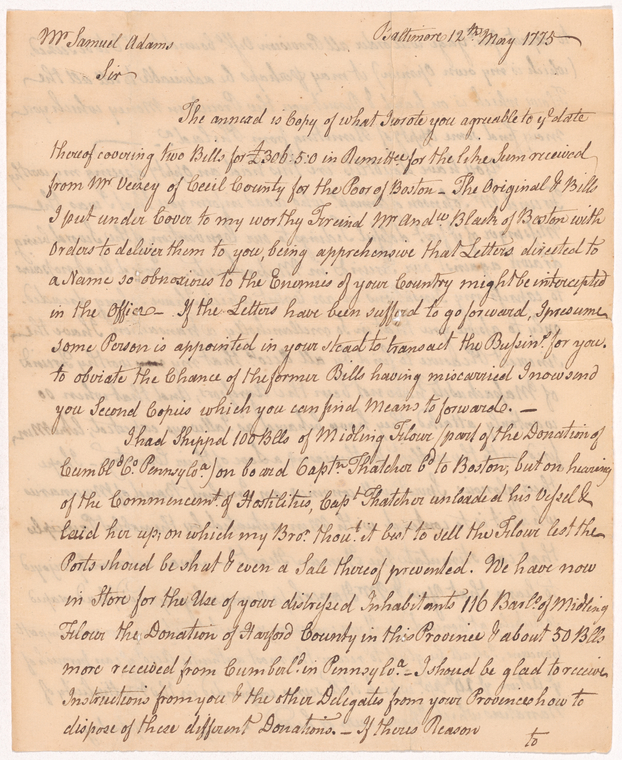 Baltimore 12th May 1775
Mr Samuel Adams
Sir
The annexed is Copy of what I wrote you agreeable to ye date
thereof covering two Bills for £306:5:0 in Remittce for the like Sum received
from Mr Veazey of Cecil County for the Poor of Boston – The Original & Bills
I put under Cover to my worthy Freind Mr Andw Black of Boston with
Orders to deliver them to you, being apprehensive that Letters directed to
a Name so obnoxious to the Enemies of your Country might be intercepted
in the Office – If the Letters have been sufferd to go forward, I presume
some Person is appointed in your stead to transact the Bussins. for you.
to obviate the Chance of the former Bills having miscarried I now send
you Second Copies which you can find Means to forward. –
I had Shippd 100 Blls of Midling Flour (part of the Donation of
Cumbld Co. Pennsylva) on board Captn Thatcher bd to Boston, but on hearing
of the Commencemt. of Hostilities, Capt Thatcher unloaded his Vessel &
laid her up, on which my Bror. thout. it best to sell the Flour lest the
Ports should be shut & even a Sale thereof prevented. We have now
in Store for the Use of your distressed Inhabitants 116 Barls. of Midling
Flour the Donation of Harford County in this Province & about 50 Blls
more received from Cumberld. in Pennsylva. – I should be glad to receive
Instructions from you & the other Delegates from your Province how to
dispose of these different Donations. – If theres Reason
to